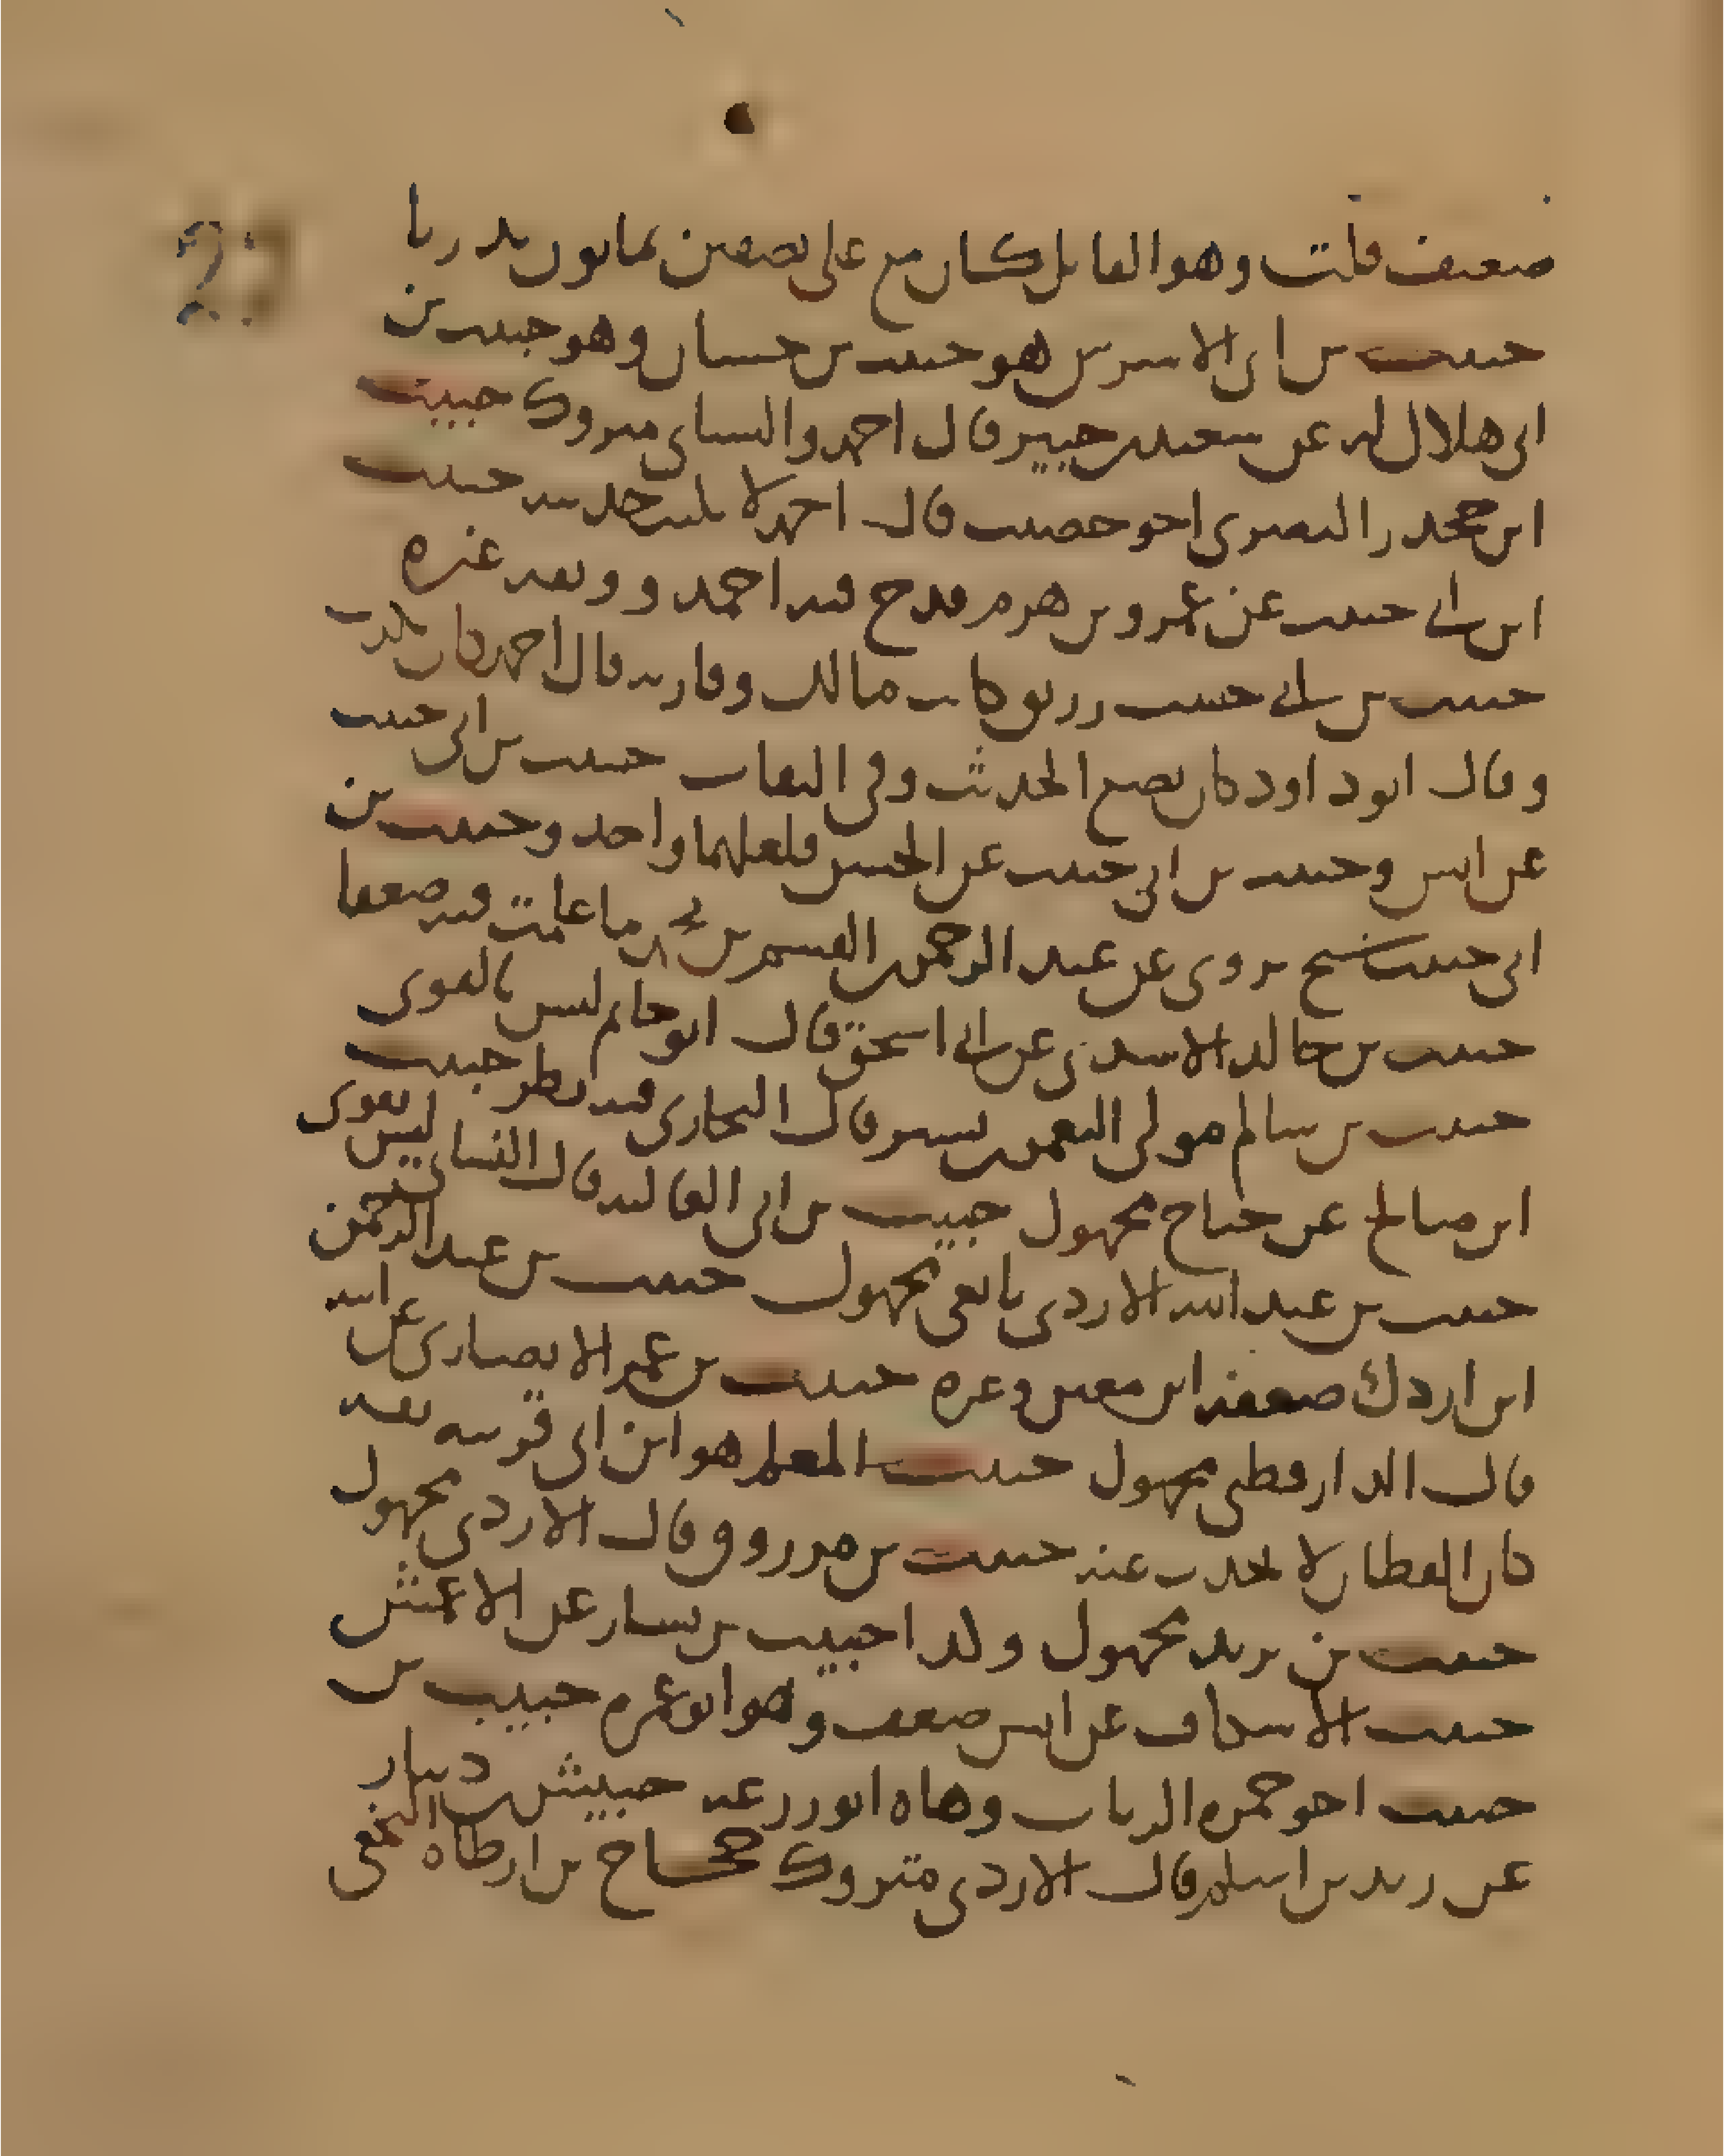 ضعيف قلت وهو القايل كان مع علي بصفين ثمانون بدريا
حبيب بن ابي الاشرس هو حبيب بن حسان وهو حبيب بن
ابي هلال له عن سعيد بن جبير قال احمد والنسائي متروك حبيب
ابن جحدر البصري اخو خصيب قال احمد لا يكتب حديثه حبيب
ابن ابي حبيب عن عمرو بن هرم قدح فيه احمد ووثقه غيره
حبيب بن ابي حبيب رزيق كاتب مالك وقاريه قال احمد كان يكذب
وقال ابو داود كان يضع الحديث وفي الثقات حبيب بن ابي حبيب
عن انس وحبيب بن ابي حبيب عن الحسن فلعلهما واحد وحبيب بن
ابي حبيب شيخ يروي عن عبد الرحمن بن القسم بن محمد ما علمت فيه ضعفا
حبيب بن خالد الاسدي عن ابي اسحق قال ابو حاتم ليس بالقوي
حبيب بن سالم مولى النعمن بن بشير قال البخاري فيه نظر حبيب
ابن صالح عن حباح مجهول حبيب بن ابي العاليه قال النسائي ليس بقوي
حبيب بن عبد الله الازدي تابعي مجهول حبيب بن عبد الرحمن
ابن اردك ضعفه ابن معين وغيره حبيب بن عمر الانصاري عن ابيه
قال الدارقطني مجهول حبيب المعلم هو ابن ابي قريبه ثقه
كان القطان لا يحدث عنه حبيب بن مرزوق قال الازدي مجهول
حبيب بن يزيد مجهول ولذا حبيب بن يسار عن الاعمش
حبيب الاسكاف عن انس ضعيف وهو ابو عمره حبيب بن
حبيب اخو حمزه الزيات وهاه ابو زرعه حبيش بن دينار
عن زيد بن اسلم قال الازدي متروك حجاج بن ارطاه النخعي